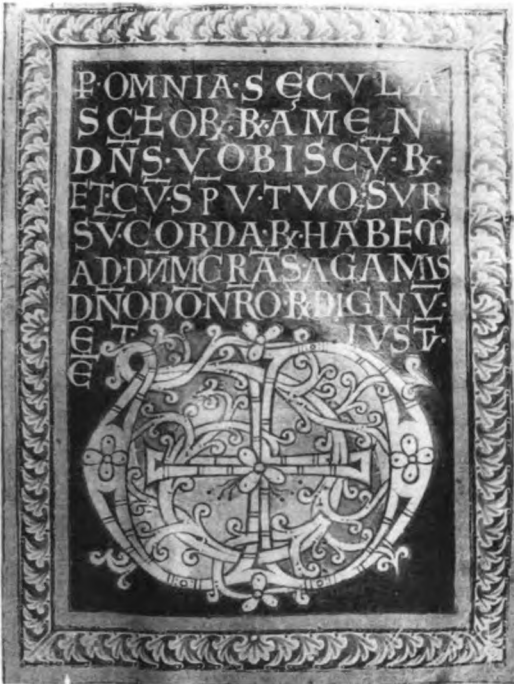 P̲·OMNIA·SĘCVLA
SCŁOR̷·R̷·AMEN
DN̄S·VOBISCV̄·R̷·
ET·CV̄·SPV̄·TVO·SVR
SV̄·CORDA·R̷·HABEM̄
AD·DN̄M·GRĀS·AGAMIS
DN̄O DŌ NR̄O·R̷·DIGNV̄·
ET IVST̄·
Ē